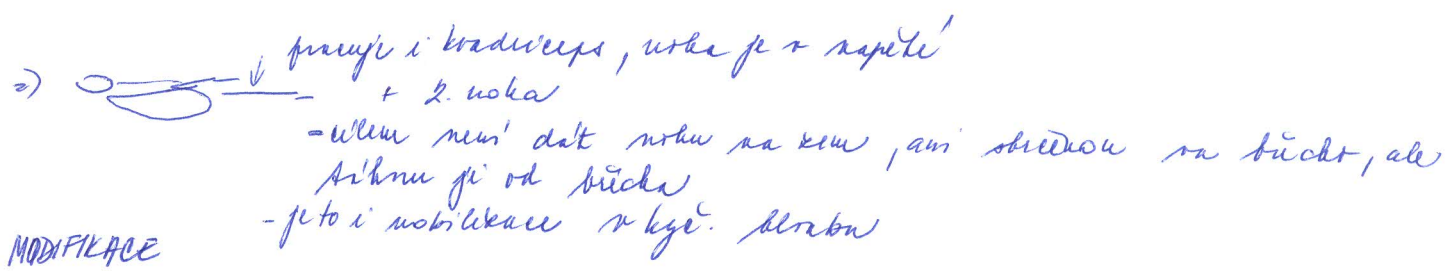 2) pracuje i kvadriceps, noha je v napětí
+ 2. noha
- cílem není dát nohu na zem, ani stočenou na břicho, ale
táhnu ji od břicha
- je to i mobilizace v kyč. kloubu
MODIFIKACE